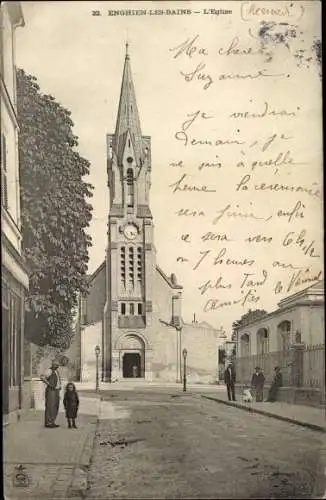 32. ENGHIEN-LES-BAINS – L'Eglise
(Mercredi)
Ma chere
Suzanne
je viendrai
demain, je
ne sais pas à quelle
heure la cérémonie
sera finie, enfin
ce sera vers 6h½
7 heures au
plus tard
Amitiés